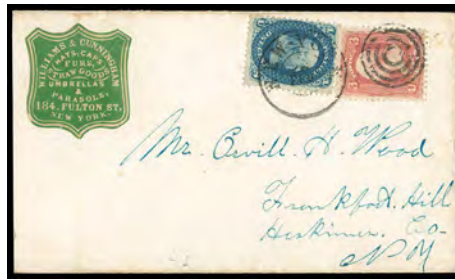 WILLIAMS & CUNNINGHAM
HATS, CAPS
FURS,
STRAW GOODS
UMBRELLAS
&
PARASOLS,
184, FULTON ST,
NEW YORK.
Mr. H. Wood
Frankfort Hill
Herkimer Co-
N.Y